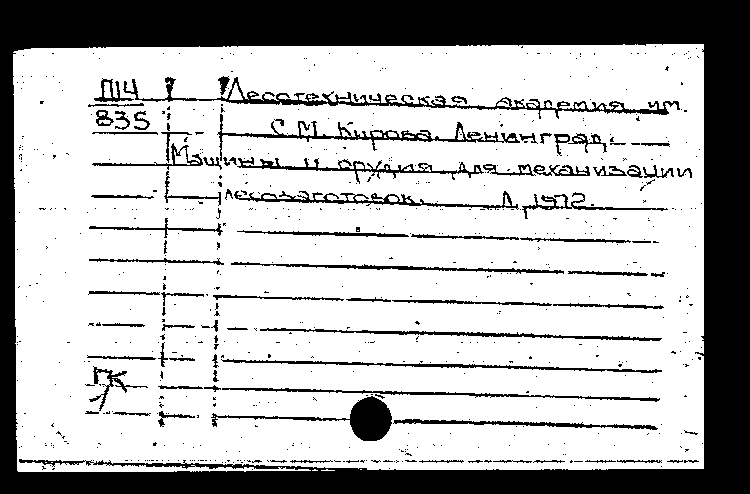 П14 Лесотехническая академия им.
835 С.М. Кирова. Ленинград.
Машины и орудия для механизации
лесозаготовок. Л, 1972.
ГК